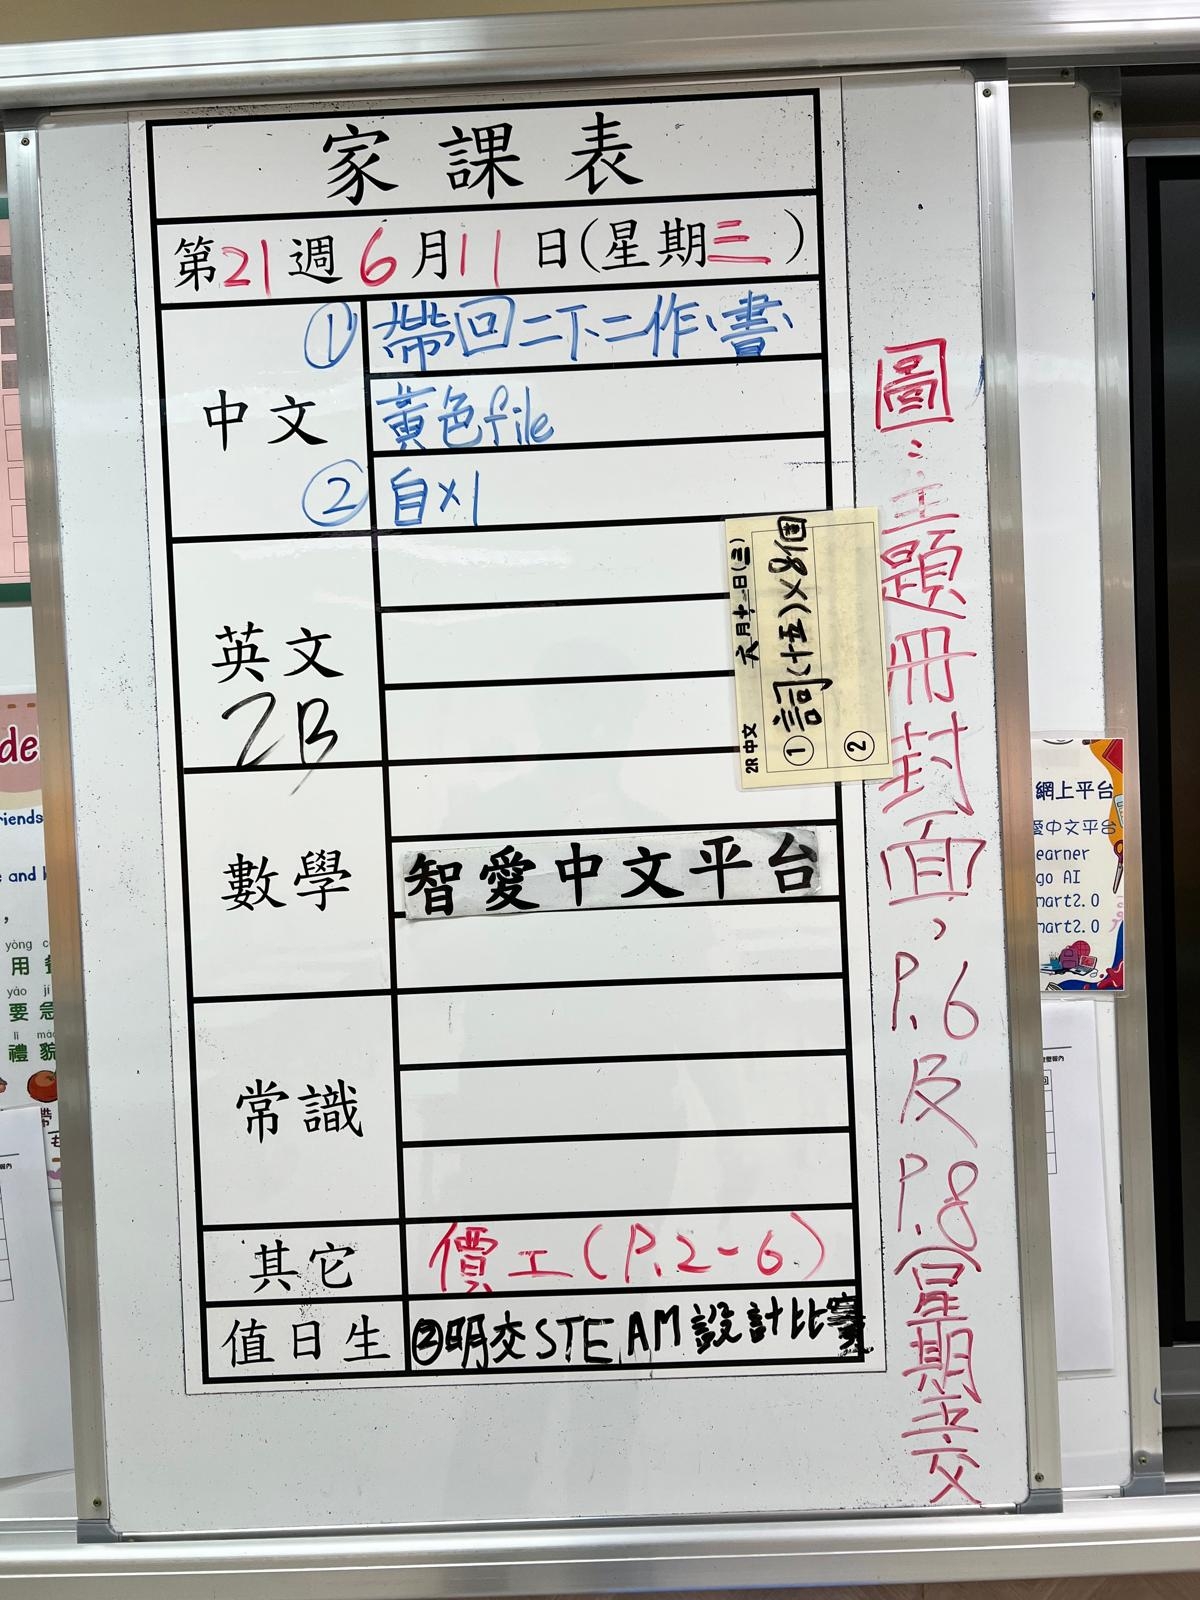 家課表
第21週6月11日(星期三)
中文
① 帶回二下二作、書、
黃色file
② 自×1
英文
2B
數學
智愛中文平台
常識
其它
價工(P.2-6)
值日生
②明交STEAM設計比賽
2R 中文 六月十一日(三)
① 詞(十五)×8個
②
圖:主題冊封面,P.6及P.8(星期五交
網上平台
愛中文平台
earner
go AI
mart2.0
mart2.0
de
riends
e and
yòng
用
yào jí
要急
lǐ mào
禮貌
帶